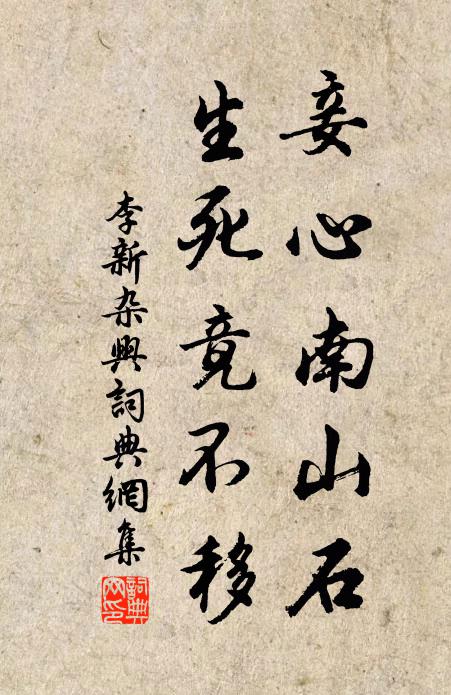 妾心南山石
生死竟不移
李新杂興詞典網集
詞典
网印